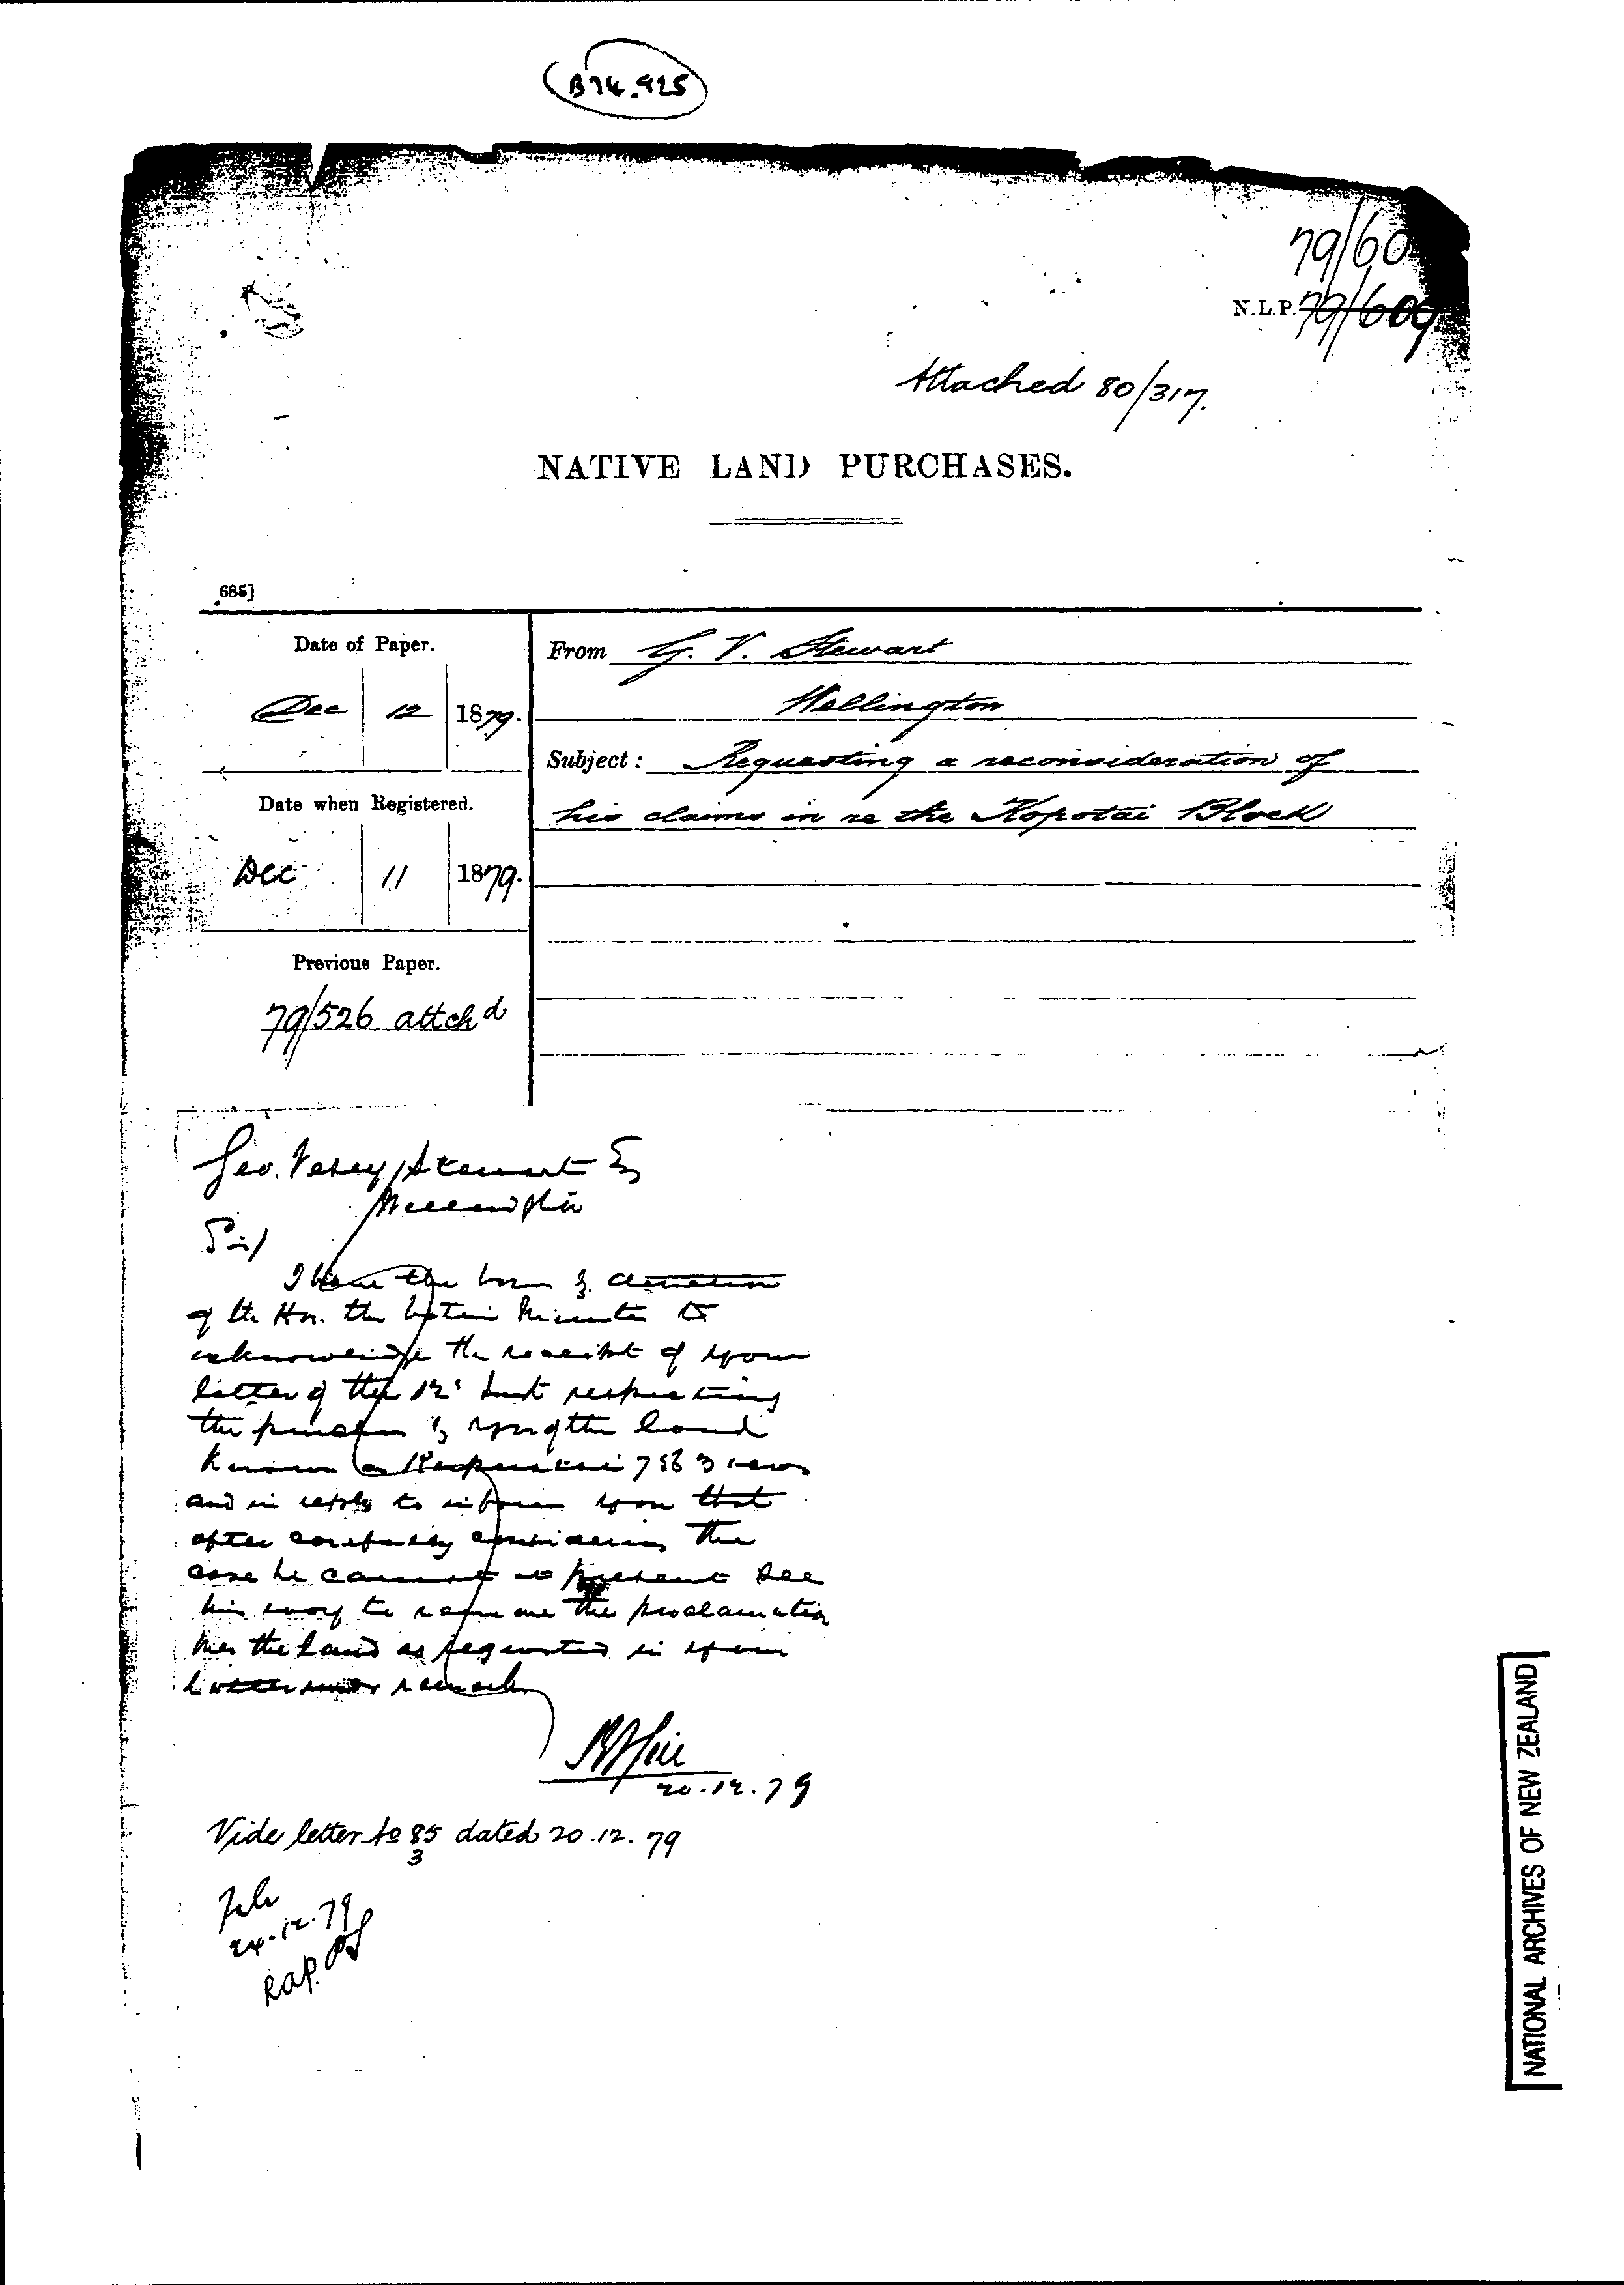 B74.925
79/60
N.L.P. 79/609
Attached 80/317.
NATIVE LAND PURCHASES.
685]
Date of Paper.
Dec 12 1879.
From G. V. Stewart
Wellington
Subject: Requesting a reconsideration of
his claims in re the Kopotai Block
Date when Registered.
Dec 11 1879.
Previous Paper.
79/526 attchd
Geo. Vesey Stewart Esq
Wellington
Sir
I have the hon
of the Hon. the Native Minister to
acknowledge the receipt of your
letter of the 12th Inst respecting
the purchase by you of the land
known as 7583 acres
and in reply to inform you that
after carefully considering the
case he cannot at present see
his way to remove the proclamation
over the land as requested in your
letter
20.12.79
Vide letter No 85/3 dated 20.12.79
File
24.12.79
RAP.
NATIONAL ARCHIVES OF NEW ZEALAND